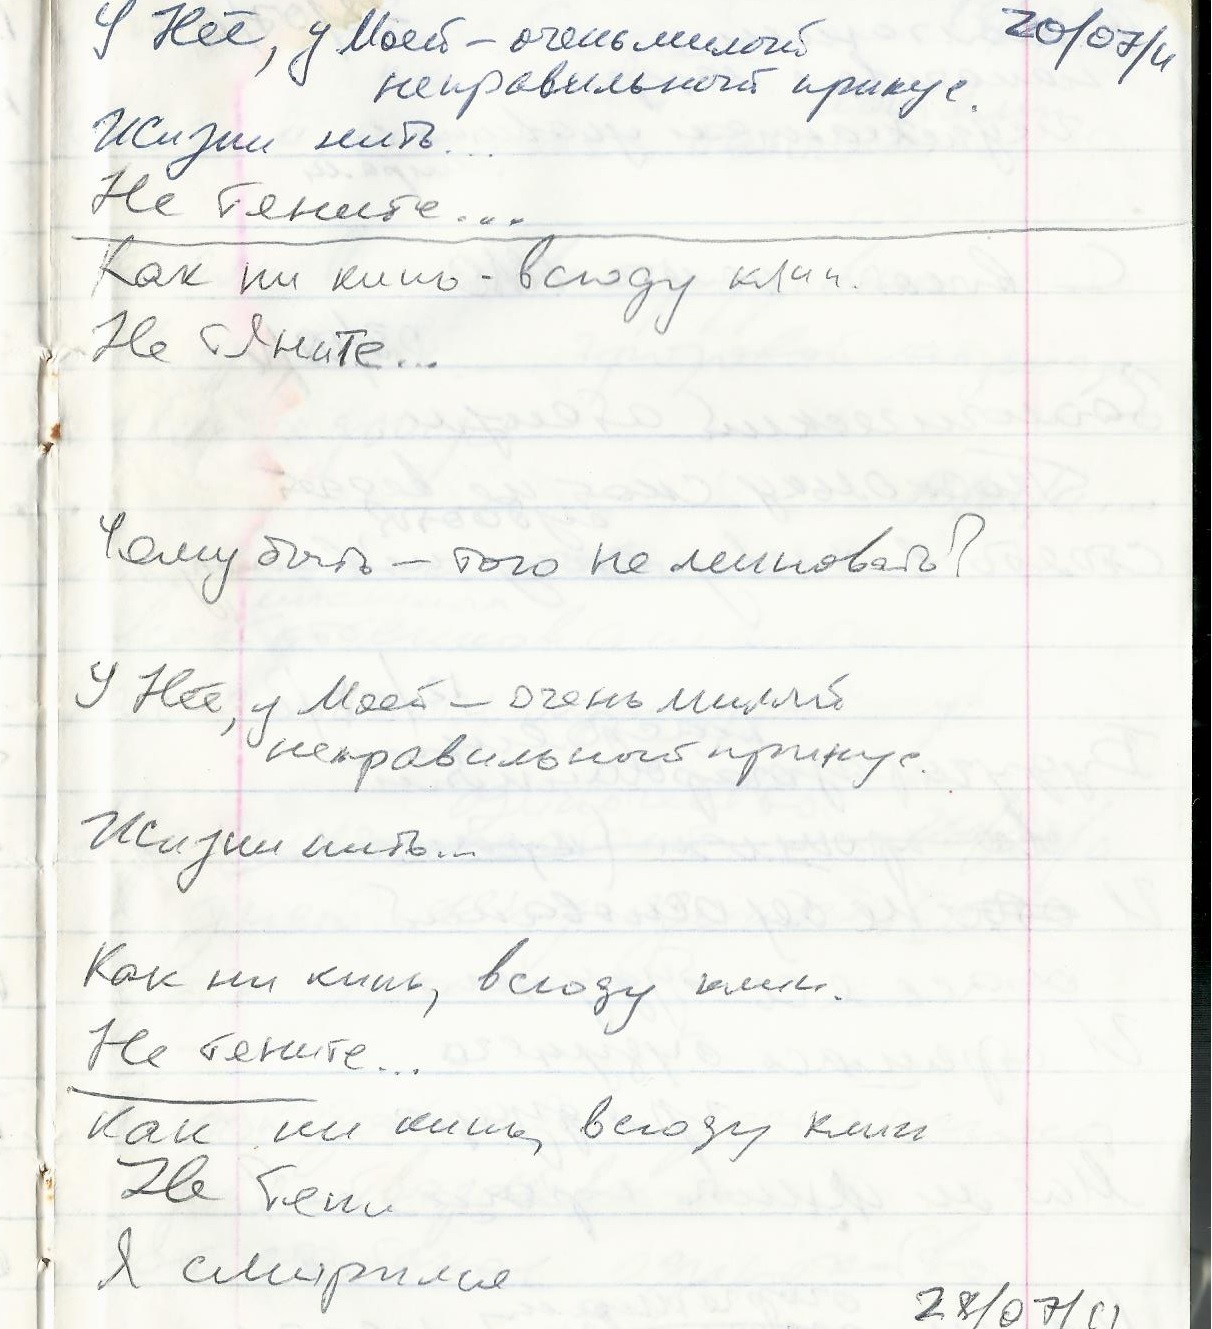 У Неё, у Моей – очень милый 20/07/11
неправильный прикус.
Жизни нить...
Не тените...
Как ни кинь - всюду клин.
Не тяните...
Чему быть – того не миновать?
У Неё, у Моей – очень милый
неправильный прикус.
Жизни нить...
Как ни кинь, всюду клин.
Не тените...
Как ни кинь, всюду клин
Не тени
Я смирился
28/07/11